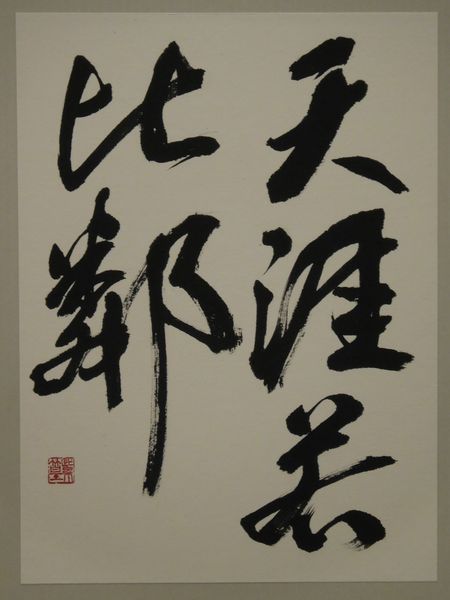 天涯若
比鄰